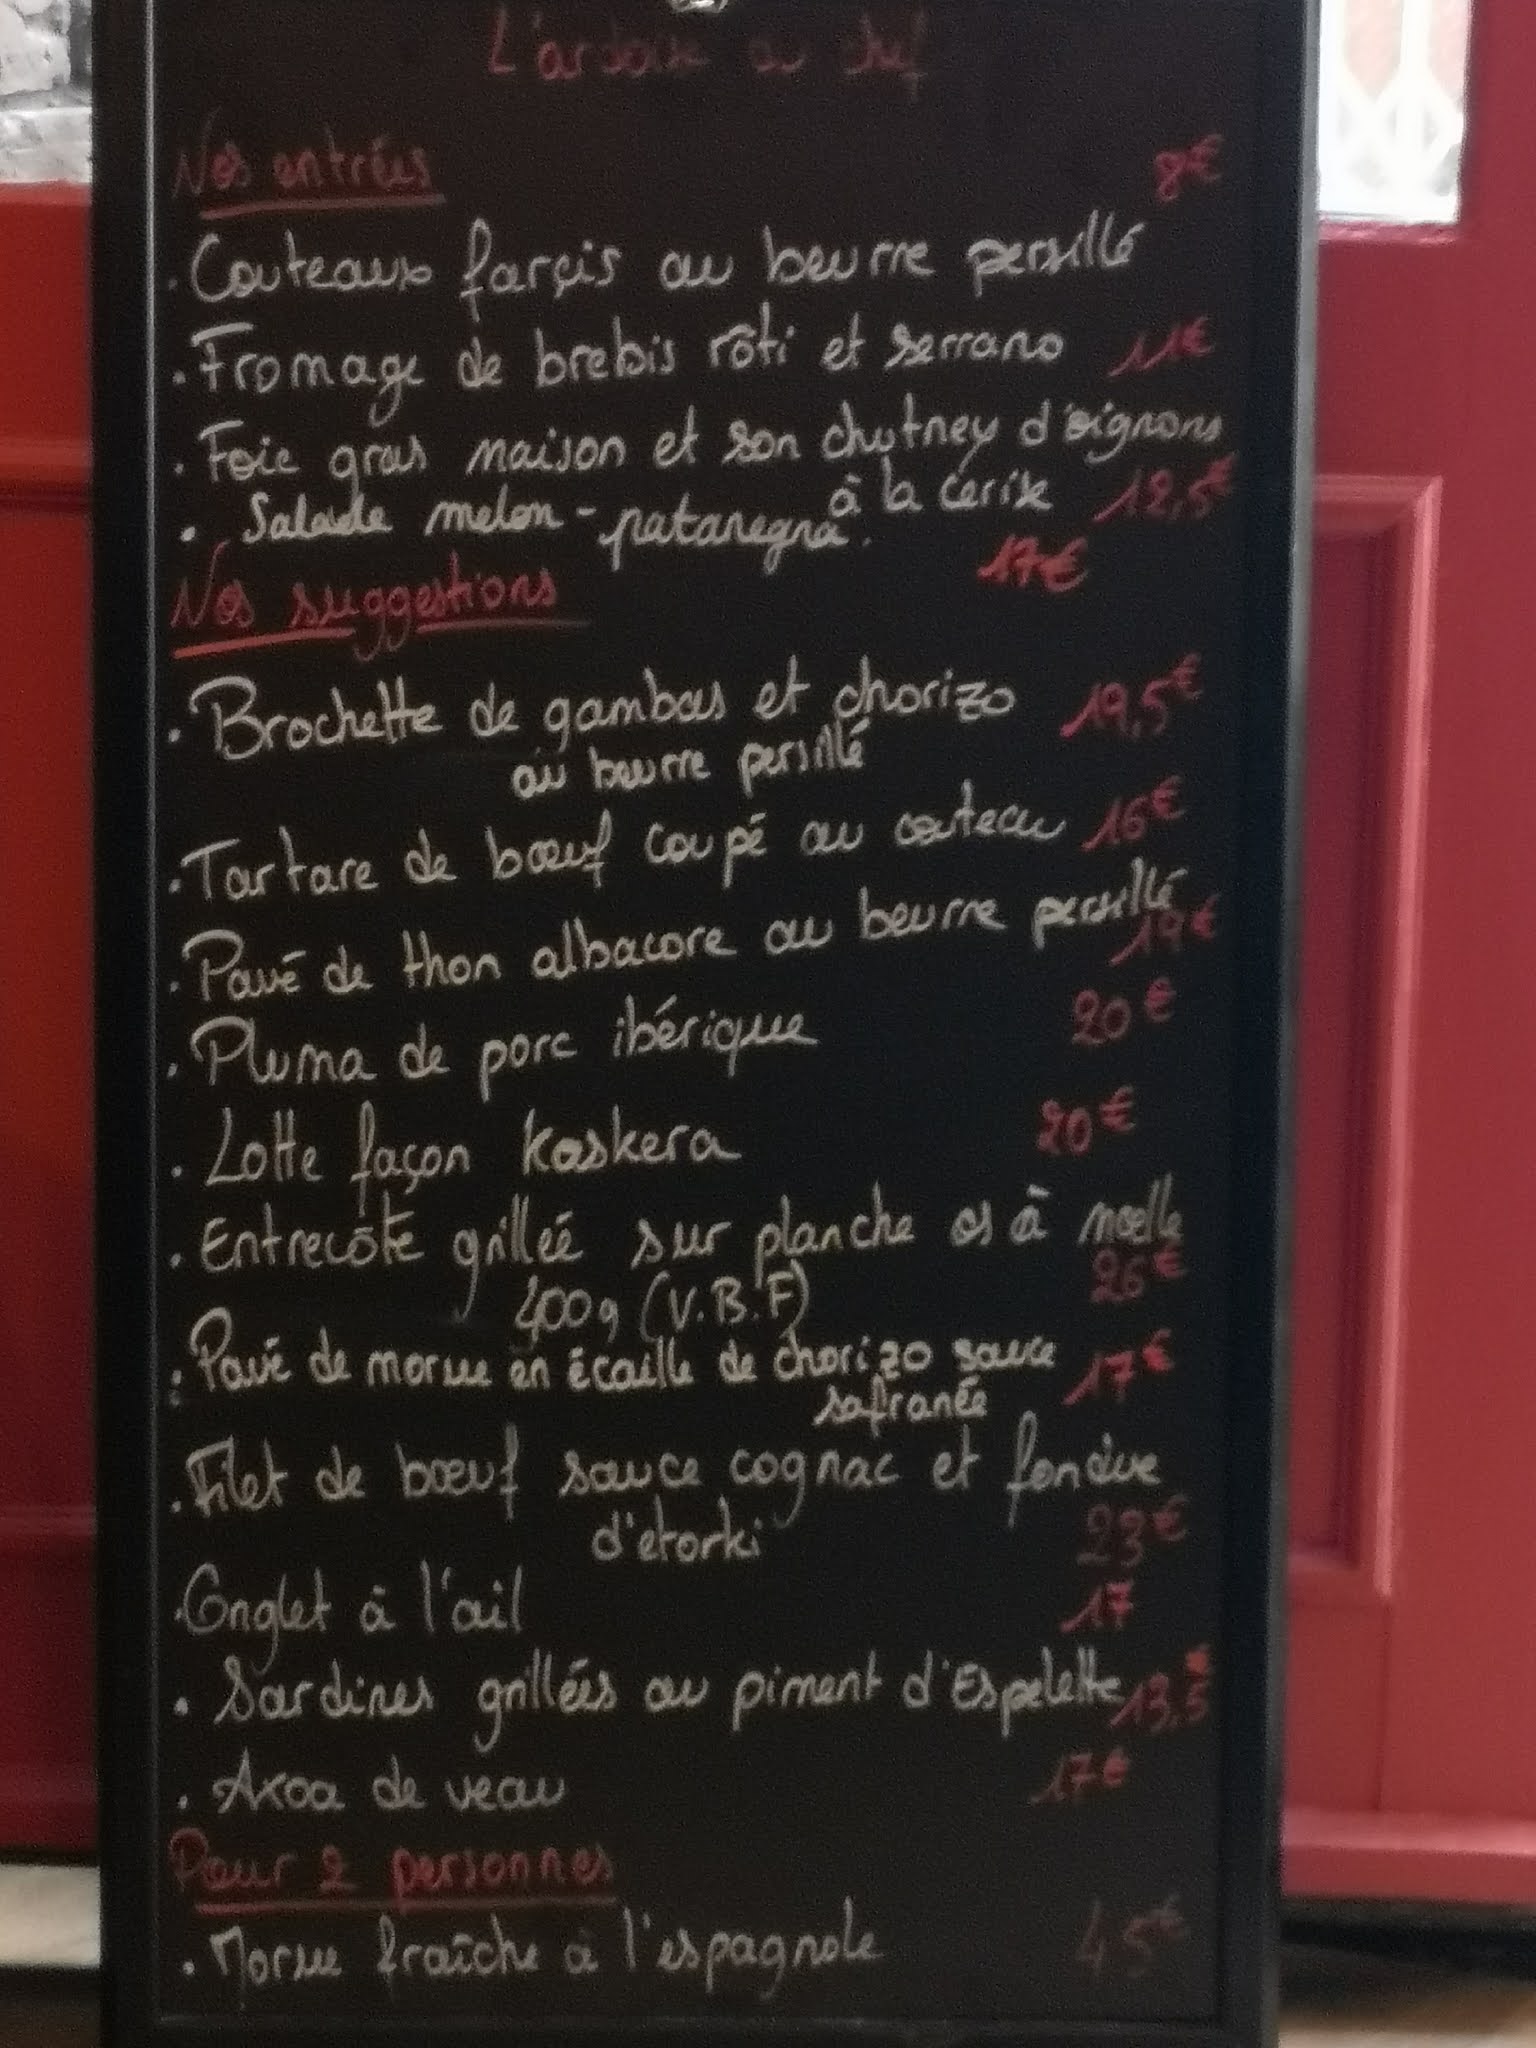 L'ardoise du chef
Nos entrées 8€
. Couteaux farçis au beurre persillé
. Fromage de brebis rôti et serrano 11€
. Foie gras maison et son chutney d'oignons
à la cerise 12,5€
. Salade melon - patanegra.
17€
Nos suggestions
. Brochette de gambas et chorizo 19,5€
au beurre persillé
. Tartare de bœuf coupé au couteau 16€
. Pavé de thon albacore au beurre persillé
19€
. Pluma de porc ibérique 20€
. Lotte façon koskera 20€
. Entrecôte grilleé sur planche os à moelle
400g (V.B.F) 26€
. Pavé de morue en écaille de chorizo sauce 17€
safranée
. Filet de bœuf sauce cognac et fondue
d'etorki 23€
. Onglet à l'ail 17
. Sardines grillées au piment d'Espelette 13,5€
. Axoa de veau 17€
Pour 2 personnes
. Morue fraîche à l'espagnole 45€